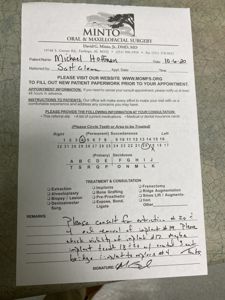 MINTO
ORAL & MAXILLOFACIAL SURGERY
David G. Minto, Jr., DMD, MD
Patient Name: Michael Hoffman Date: 10-6-20
Referred by: Scott Date: Time:
PLEASE VISIT OUR WEBSITE WWW.MOMFS.ORG
TO FILL OUT NEW PATIENT PAPERWORK PRIOR TO YOUR APPOINTMENT
APPOINTMENT INFORMATION: If you need to cancel your consult appointment, please notify us at least
48 hours in advance.
INSTRUCTIONS TO PATIENTS: Our office will make every effort to make your visit with us a
comfortable experience and address any concerns you may have.
PLEASE PROVIDE THE FOLLOWING INFORMATION AT YOUR CONSULTATION:
• This referral slip • A list of current medications • Medical or dental insurance cards
(Please Circle Teeth or Area to be Treated)
Right (Permanent) Succedaneous Left
1 2 3 4 5 6 7 8 9 10 11 12 13 14 15 16
32 31 30 29 28 27 26 25 24 23 22 21 20 19 18 17
(Primary) Deciduous
A B C D E F G H I J
T S R Q P O N M L K
TREATMENT & CONSULTATION
Extraction
Alveoloplasty
Biopsy / Lesion
Dentoalveolar
Surg.
Implants
Bone Grafting
Pre-Prosthetic
Expose, Bond,
Ligate
Frenectomy
Ridge Augmentation
Sinus Lift / Augment.
Other
REMARKS
Please consult for extraction # 20
and removal of implant # 19. Please
check viability of implant
implant
bridge implant to replace
SIGNATURE: